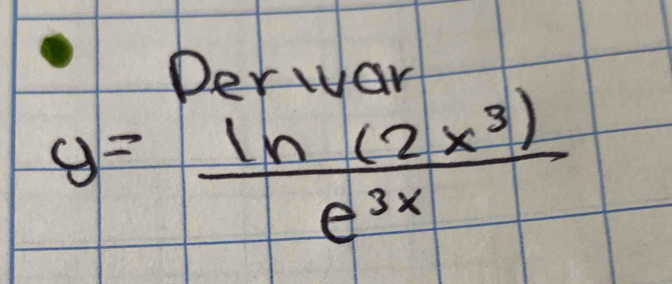 Derivar
y = ln (2x³) / e³ˣ